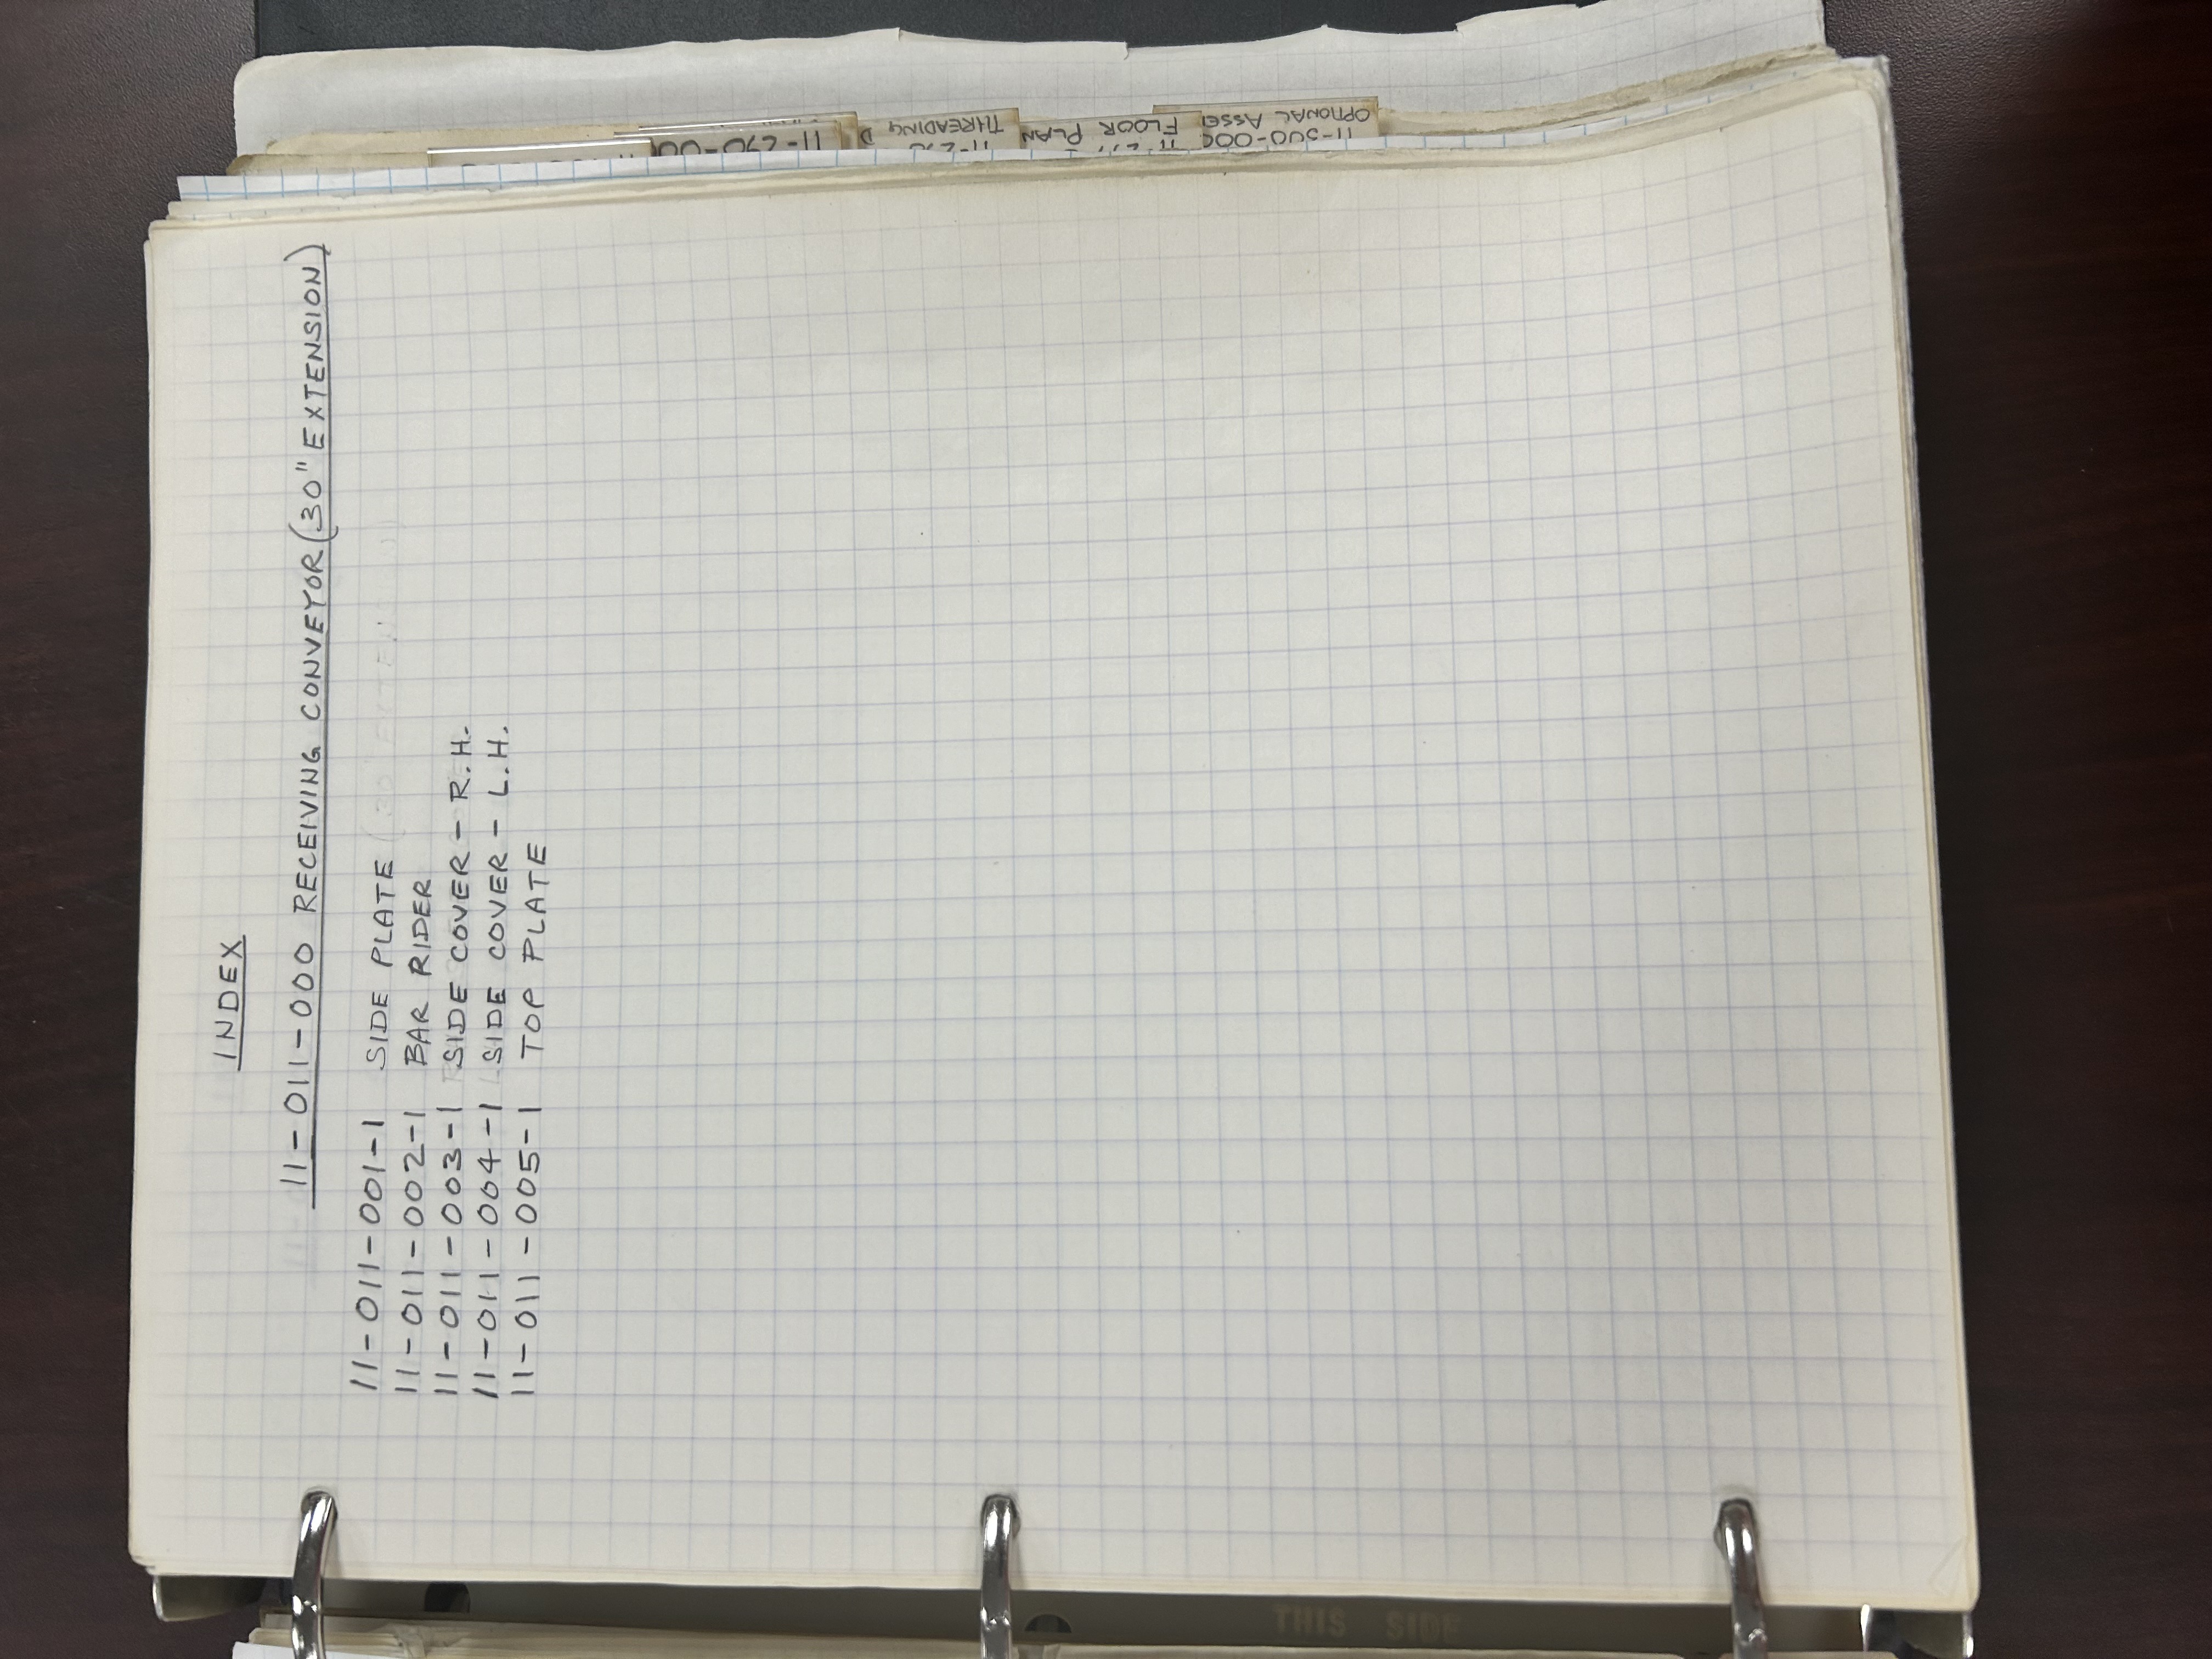 INDEX
11-011-000 RECEIVING CONVEYOR (30" EXTENSION)
11-011-001-1 SIDE PLATE (30 EXTENSION)
11-011-002-1 BAR RIDER
11-011-003-1 SIDE COVER - R.H.
11-011-004-1 SIDE COVER - L.H.
11-011-005-1 TOP PLATE
THREADING
FLOOR PLAN
OPTIONAL
THIS SIDE